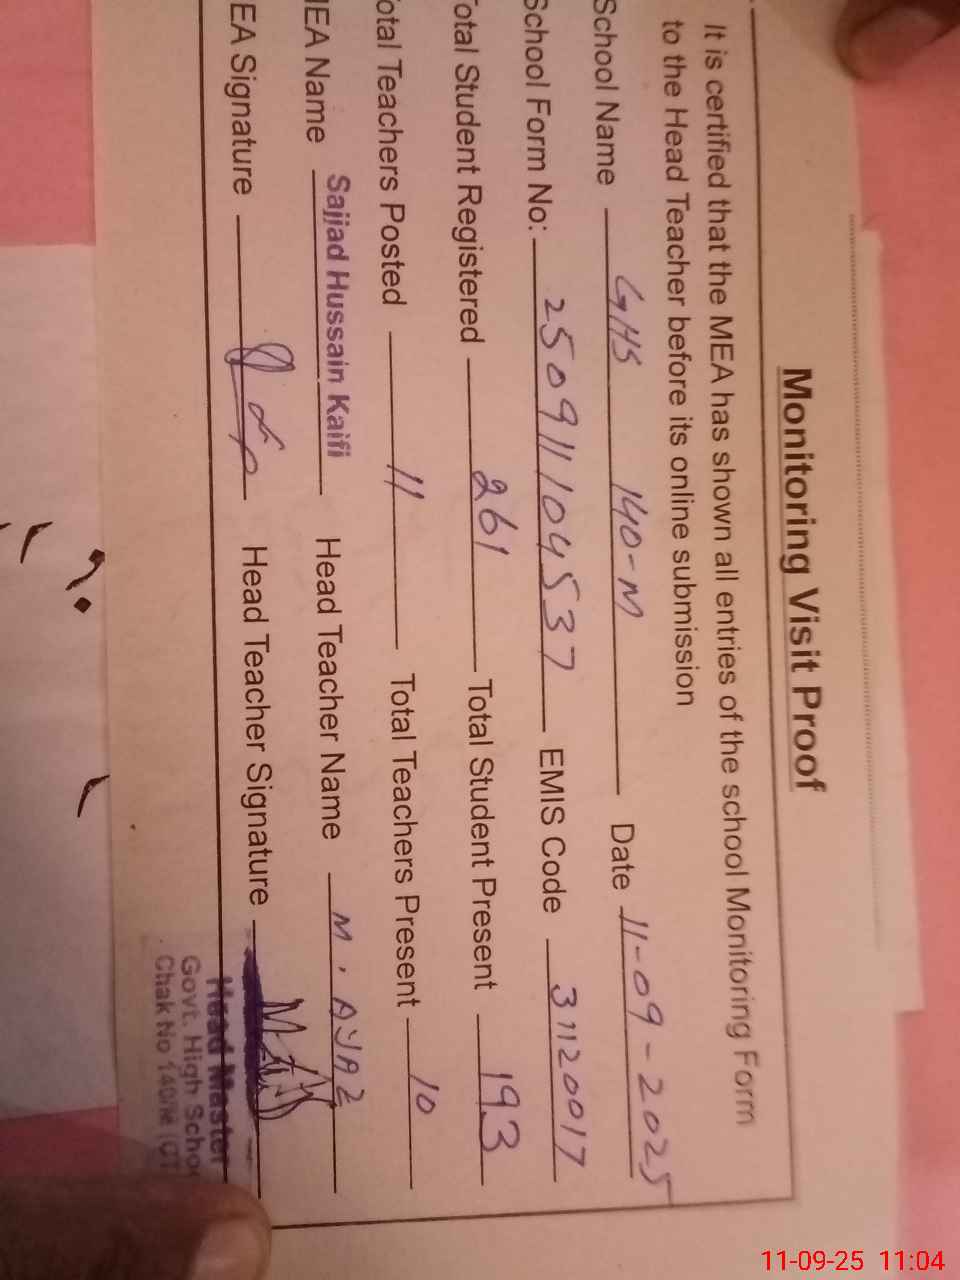 Monitoring Visit Proof
It is certified that the MEA has shown all entries of the school Monitoring Form
to the Head Teacher before its online submission
School Name GHS 140-M Date 11-09-2025
School Form No: 250911104537 EMIS Code 31120017
Total Student Registered 261 Total Student Present 193
Total Teachers Posted 11 Total Teachers Present 10
MEA Name Sajjad Hussain Kaifi Head Teacher Name M. AYAZ
EA Signature Head Teacher Signature
Head Master
Govt. High Schoo
Chak No 140/M (CT
11-09-25 11:04